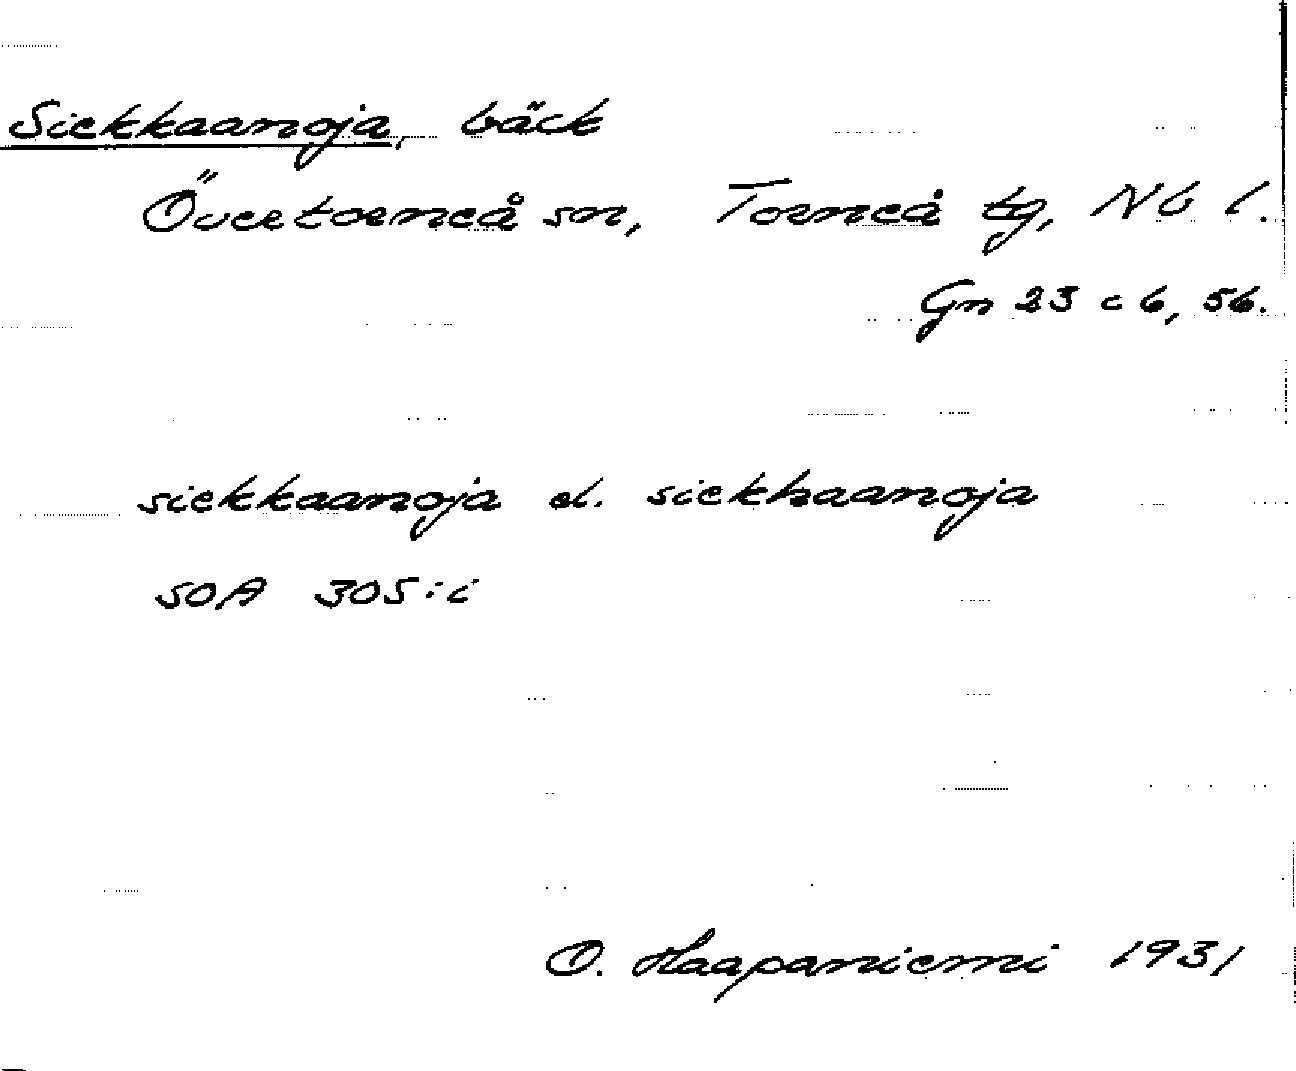 Siekkaanoja, bäck
Övertorneå sn, Torneå tg, Nb l.
Gn 23 c 6, 56.
siekkaanoja el. siekhaanoja
SOA 305:i
O. Haapaniemi 1931